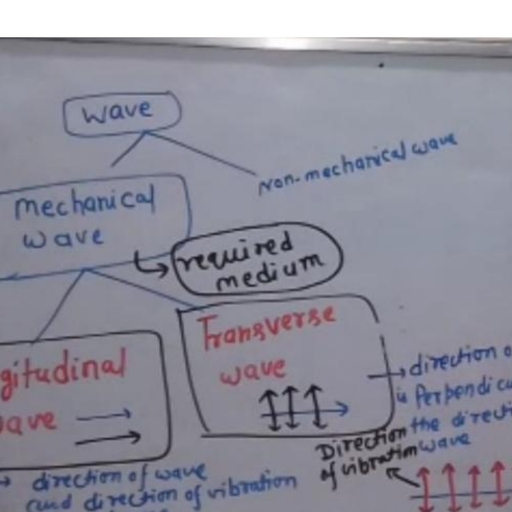 wave
Non-mechanical wave
mechanical
wave
required
medium
gitudinal
wave
Transverse
wave
direction o
is perpendicu
the directi
wave
Direction
of vibration
direction of wave
and direction of vibration